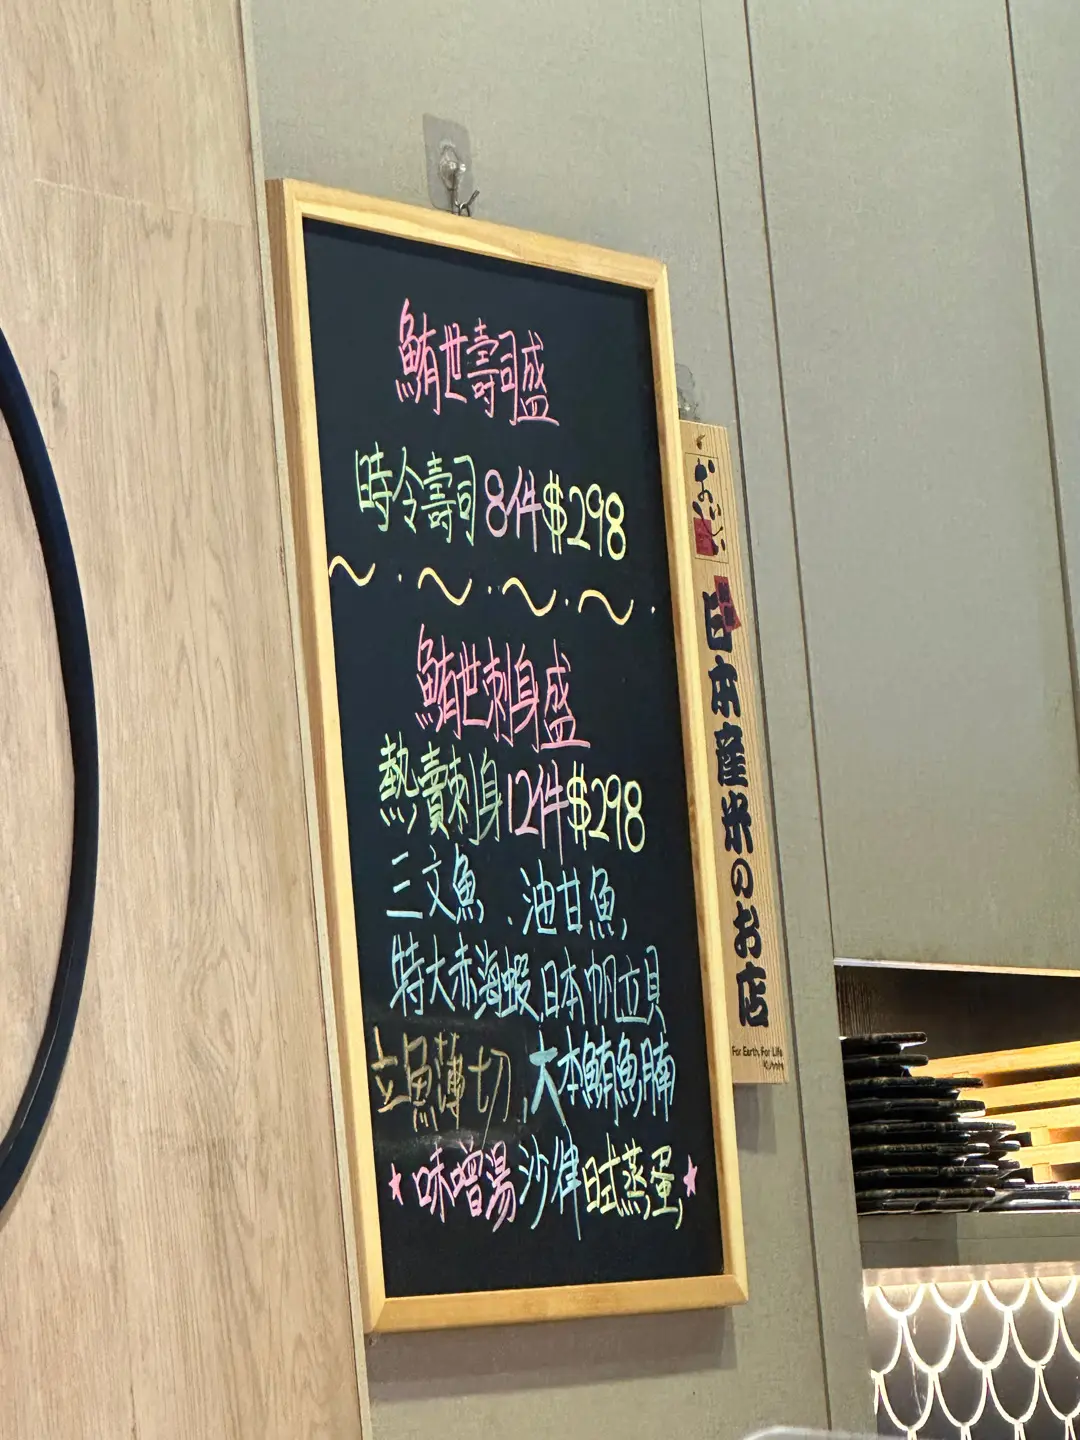 鮪世壽司盛
時令壽司8件$298
鮪世刺身盛
熱賣刺身12件$298
三文魚.油甘魚,
特大赤海蝦,日本帆立貝
立魚薄切,大本鮪魚腩
★味噌湯沙律日式蒸蛋★
おいしい
日本産米のお店
For Earth, For Life
Kubota